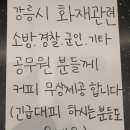 강릉시 화재관련
소방. 경찰. 군인. 기타
공무원 분들께
커피 무상제공합니다
(긴급대피 하시는분들도